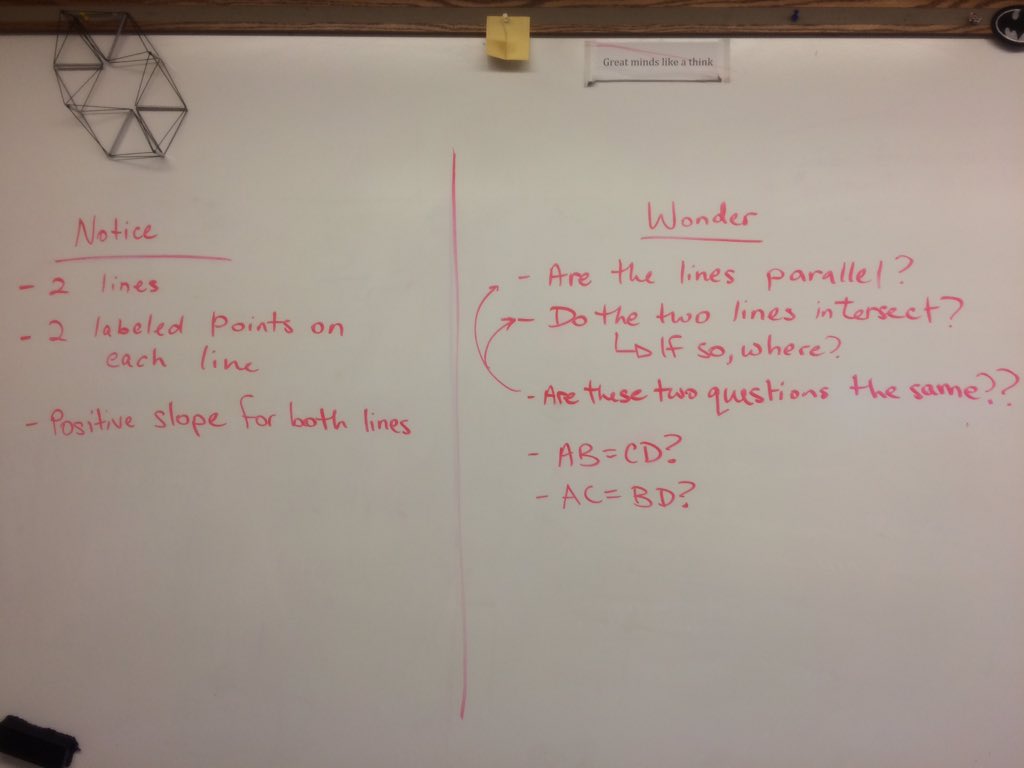 Great minds like a think
Notice
- 2 lines
- 2 labeled points on
each line
- Positive slope for both lines
Wonder
- Are the lines parallel?
- Do the two lines intersect?
↳ If so, where?
- Are these two questions the same??
- AB = CD?
- AC = BD?